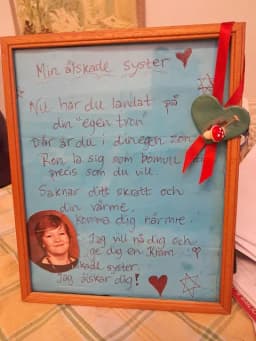 Min älskade syster
Nu har du landat på
din "egen tron"
Där är du i din egen zon
Ron la sig som bomull
precis som du vill.
Saknar ditt skratt och
din värme.
Komma dig närmre.
Jag vill nå dig och
ge dig en kram
syster.
Jag älskar dig!